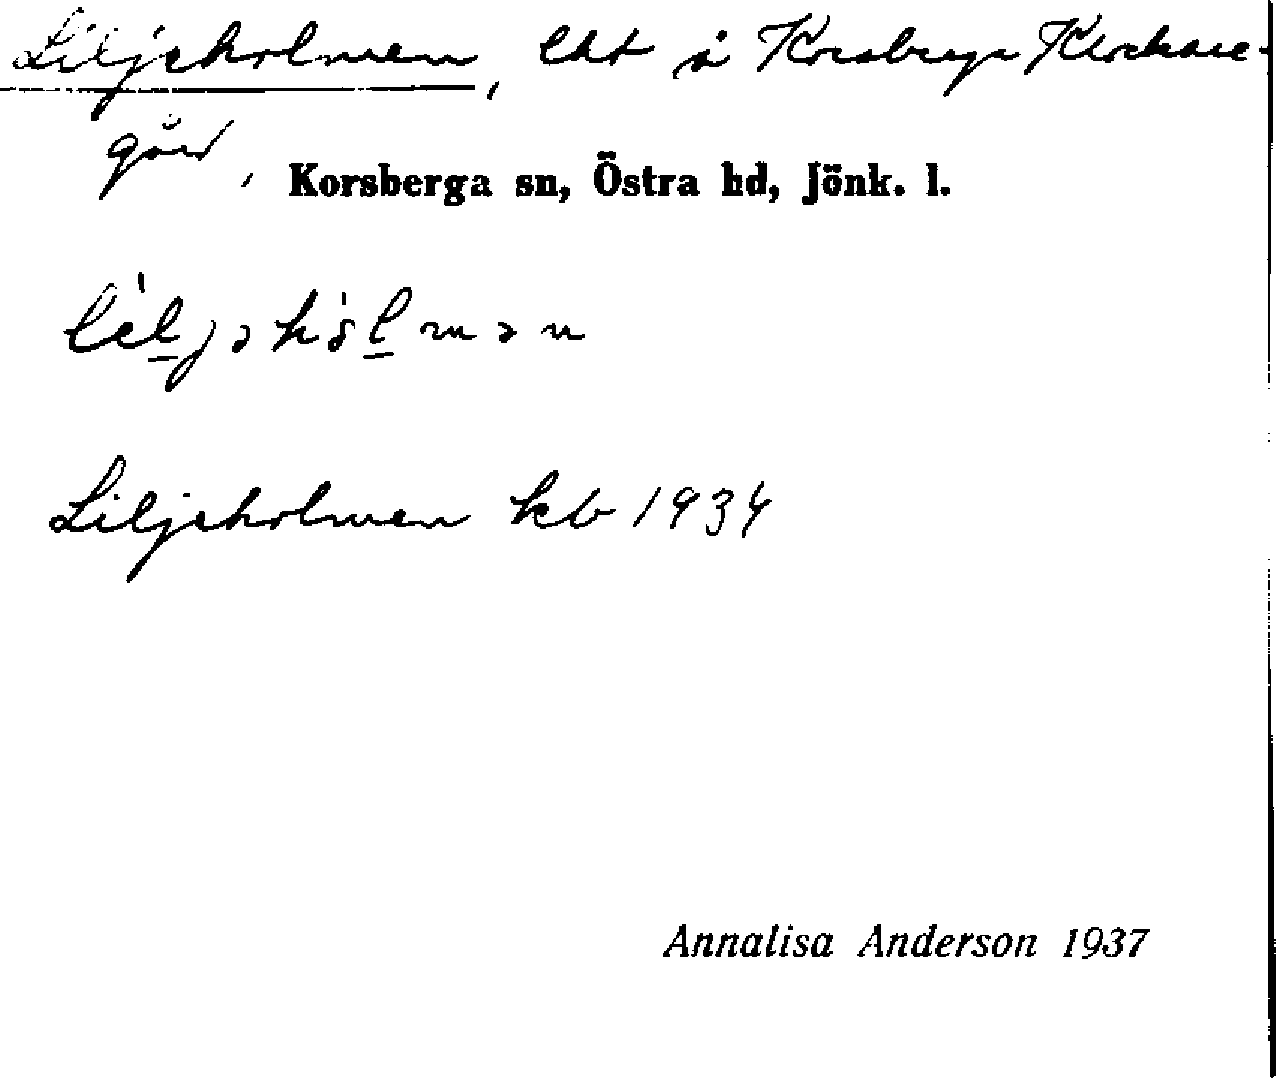 Liljeholmen, lht å Korsberga Klockare-
gård, Korsberga sn, Östra hd, Jönk. l.
Liljeholmen kb 1934
Annalisa Anderson 1937